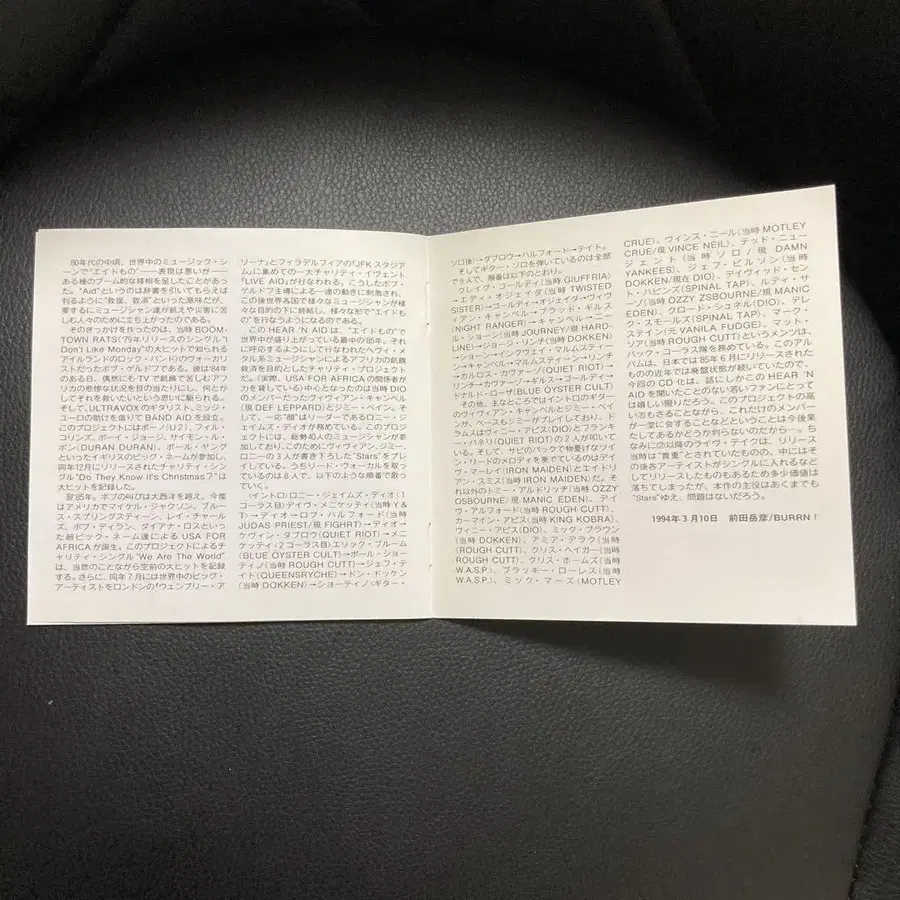 80年代の中頃、世界中のミュージック・シ
ーンで"エイドもの"——表現は悪いが——
ある種のブーム的な様相を呈したことがあっ
た。"Aid"というのは辞書を引いてもらえば
判るように"救援、救済"といった意味だが、
要するにミュージシャン達が飢えや災害に苦
しむ人々のために立ち上がったのである。
そのきっかけを作ったのは、当時BOOM-
TOWN RATS('79年リリースのシングル"I
Don't Like Monday"の大ヒットで知られる
アイルランドのロック・バンド)のヴォーカリ
ストだったボブ・ゲルドフである。彼は'84年
のある日、偶然にもTVで飢餓で苦しむアフ
リカの悲惨な状況を目の当たりにし、何とか
してそれを救いたいという思いに駆られる。
そして、ULTRAVOXのギタリスト、ミッジ・
ユーロの助けを借りてBAND AIDを設立。
このプロジェクトにはボーノ(U2)、フィル・
コリンズ、ボーイ・ジョージ、サイモン・ル・
ボン(DURAN DURAN)、ポール・ヤング
といったイギリスのビッグ・ネームが参加し、
同年12月にリリースされたチャリティ・シン
グル"Do They Know It's Christmas?"は
大ヒットを記録した。
翌'85年。ボブの叫びは大西洋を越え、今度
はアメリカでマイケル・ジャクソン、ブルー
ス・スプリングスティーン、レイ・チャール
ズ、ボブ・ディラン、ダイアナ・ロスといっ
た超ビック・ネーム達によるUSA FOR
AFRICAが誕生。このプロジェクトによるチ
ャリティ・シングル"We Are The World"
は、当然のことながら空前の大ヒットを記録
する。さらに、同年7月には世界中のビッグ・
アーティストをロンドンの「ウェンブリー・ア
リーナ」とフィラデルフィアの「JFKスタジア
ム」に集めての一大チャリティ・イヴェント
「LIVE AID」が行なわれる。こうしたボブ・
ゲルドフ主導による一連の動きに刺激され、
この後世界各国で様々なミュージシャンが様々
な目的の下に終結し、様々な形で"エイドも
の"を行なうようになるのである。
このHEAR 'N AIDは、"エイドもの"で
世界中が盛り上がっている最中の'85年。それ
に呼応するようにして行なわれたヘヴィ・メ
タル系ミュージシャンによるアフリカの飢餓
救済を目的としたチャリティ・プロジェクト
だ。(実際、USA FOR AFRICAの関係者が
力を貸している)中心となったのは当時DIO
のメンバーだったヴィヴィアン・キャンベル
(現DEF LEPPARD)とジミー・ベイン。そ
して、一応"顔"はリーダーであるロニー・ジ
ェイムズ・ディオが務めている。このプロジ
ェクトには、総勢40人のミュージシャンが参
加しており、このためにヴィヴィアン、ジミー、
ロニーの3人が書き下ろした"Stars"をプレ
イしている。うちリード・ヴォーカルを取っ
ているのは8人で、以下のような順番で歌っ
ていく。
(イントロ)ロニー・ジェイムズ・ディオ〈1
コーラス目〉デイヴ・メニケッティ(当時Y&
T)→ディオ→ロブ・ハルフォード(当時
JUDAS PRIEST/現FIGHRT)→ディオ→
ケヴィン・ダブロウ(QUIET RIOT)→メニ
ケッティ〈2コーラス目〉エリック・ブルーム
(BLUE ÖYSTER CULT)→ポール・ショー
ティノ(当時ROUGH CUTT)→ジェフ・テ
イト(QUEENSRYCHE)→ドン・ドッケン
(当時DOKKEN)→ショーティノ〈ギター・
ソロ後〉→ダブロウ→ハルフォード→テイト。
そしてギター・ソロを弾いているのは全部
で9人で、順番は以下のとおり。
クレイグ・ゴールディ(当時GIUFFRIA)
→エディ・オジェイダ(当時TWISTED
SISTER)→ゴールディ→オジェイダ→ヴィヴ
ィアン・キャンベル→ブラッド・ギルス
(NIGHT RANGER)→キャンベル→ニー
ル・ショーン(当時JOURNEY/現HARD-
LINE)→ジョージ・リンチ(当時DOKKEN)
→ショーン→イングウェイ・マルムスティー
ン→キャンベル→マルムスティーン→リンチ
→カルロス・カヴァーゾ(QUIET RIOT)→
リンチ→カヴァーゾ→ギルス→ゴールディ→
ドナルド・ローザ(BLUE ÖYSTER CULT)
その他、主なところではイントロのギター
のヴィヴィアン・キャンベルとジミー・ベイ
ンが、ベースもジミーがプレイしており、ド
ラムスはヴィニー・アピス(DIO)とフランキ
ー・バネリ(QUIET RIOT)の2人が叩いて
いる。そして、サビのバックで物憂げなツイ
ン・リードのメロディを奏でているのはデイ
ヴ・マーレイ(IRON MAIDEN)とエイドリ
アン・スミス(当時IRON MAIDEN)だ。そ
れ以外のトミー・アルドリッヂ(当時OZZY
OSBOURNE/現MANIC EDEN)、デイ
ヴ・アルフォード(当時ROUGH CUTT)、
カーマイン・アピス(当時KING KOBRA)、
ヴィニー・アピス(DIO)、ミック・ブラウン
(当時DOKKEN)、アミア・デラク(当時
ROUGH CUTT)、クリス・ヘイガー(当時
ROUGH CUTT)、クリス・ホームズ(当時
W.A.S.P)、ブラッキー・ローレス(当時
W.A.S.P)、ミック・マーズ(MOTLEY
CRUE)、ヴィンス・ニール(当時MOTLEY
CRUE/現VINCE NEIL)、テッド・ニュー
ジェント(当時ソロ/現DAMN
YANKEES)、ジェフ・ピルソン(当時
DOKKEN/現在DIO)、デイヴィッド・セン
ト・ハビンズ(SPINAL TAP)、ルディ・サ
ーゾ(当時OZZY ZSBOURNE/現MANIC
EDEN)、クロード・シュネル(DIO)、デレ
ク・スモールズ(SPINAL TAP)、マーク・
ステイン(元VANILA FUDGE)、マット・
ソリア(当時ROUGH CUTT)というメンツは、
バック・コーラス隊を務めている。このアル
バムは、日本では'85年6月にリリースされた
ものの近年では廃盤状態が続いていたので、
今回のCD化は、話にしかこのHEAR 'N
AIDを聞いたことのない若いファンにとって
は嬉しい限りだろう。このプロジェクトの高
い志もさることながら、これだけのメンバー
が一堂に会することなどということは今後果
たしてあるかどうか判らないのだから—。ち
なみに②以降のライヴ・テイクは、リリース
当時は"貴重"とされていたものの、中にはそ
の後各アーティストがシングルに入れるなど
してリリースしたものもあるため多少価値は
落ちてしまったが、本作の主役はあくまでも
"Stars"ゆえ、問題はないだろう。
1994年3月10日 前田岳彦/BURRN!